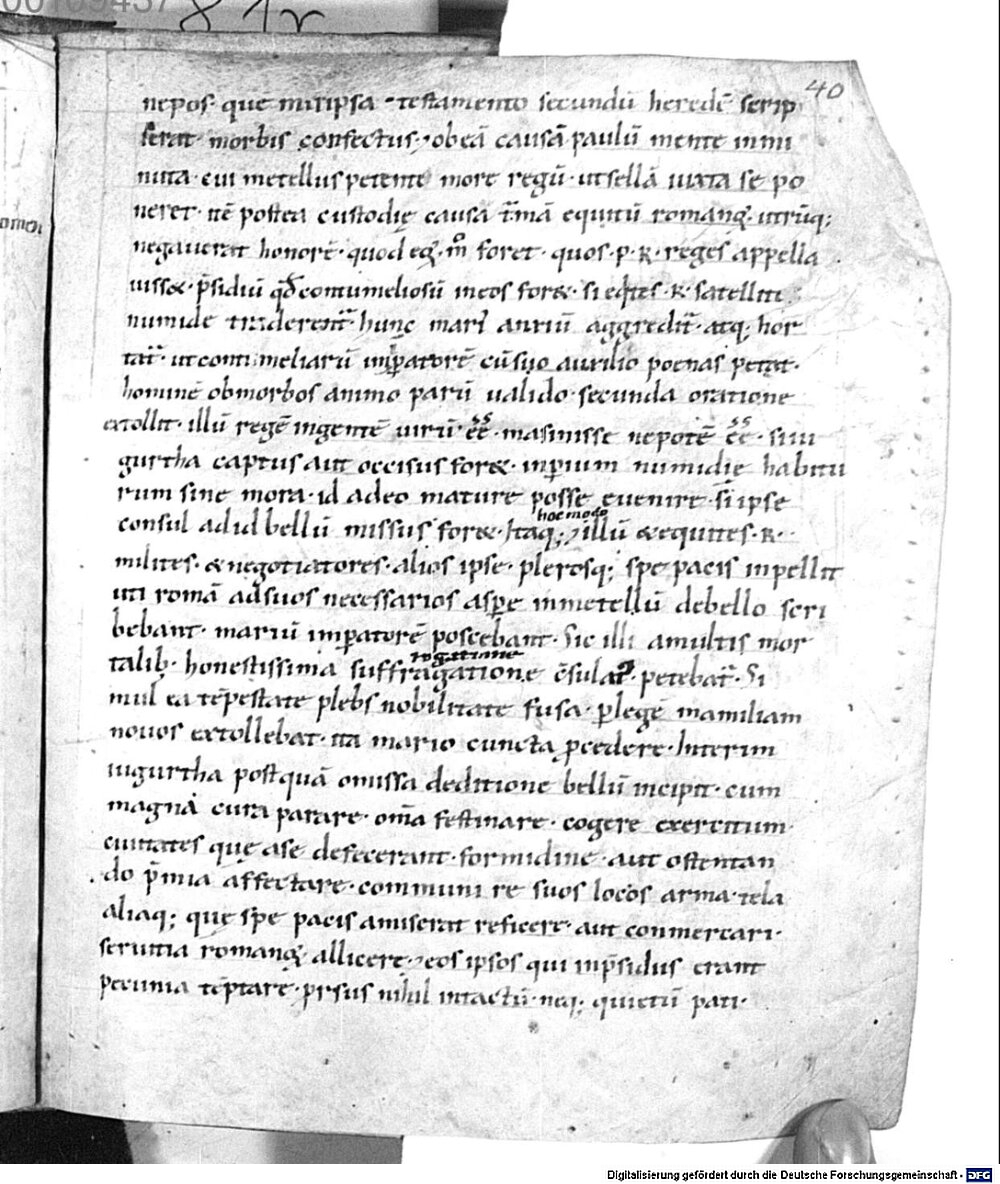 00109437
81r
40
nepos· quē micipsa · testamento secundū heredē scrip
serat· morbis confectus· ⁊ ob eā causā paulū mente inmi
nuta· cui metellus petente more regū· ut sellā iuxta se po
neret· itē postea custodię causa t̄mā equitū romanoꝝ· utrūq;
negauerat honorē· quod eoꝝ· mͦ foret· quos· p· R· reges appella
uisset· p̄sidiū qđ contumeliosū in eos foret· si eq̄tes· R· satelliti
numide traderent̄· hunc mari᷒ anxiū aggredit̄· atq; hor
tat̄· ut contumeliarū inꝑatorē cū suo auxilio poenas petat·
hominē ob morbos animo parū ualido· secunda oratione
extollit· illū regē ingentē uirū ēē· masinisse nepotē ēē· si iu
gurtha captus aut occisus foret· inperium numidię habitu
rum sine mora· id adeo mature posse euenire· si ipse
consul ad id bellū missus foret· Itaq; ⁊ illū & equites· R·
hoc modo
milites· & negotiatores· alios ipse· plerosq; spe pacis inpellit
uti romā ad suos necessarios asꝑe in metellū de bello scri
bebant· mariū inꝑatorē poscebant· Sic illi a multis mor
talib; honestissima suffragatione c̄sulat᷒· petebat̄· Si
rogatione
mul ea tēpestate plebs nobilitate fusa· ꝑ legē mamiliam
nouos extollebat· ita mario cuncta ꝓcedere· Interim
iugurtha postquā omissa deditione bellū incipit· cum
magna cura parare· om̄a festinare· cogere exercitum·
ciuitates que a se defecerant· formidine· aut ostentan
do p̄mia affectare· communi re suos locos arma· tela
aliaq; que spe pacis amiserat reficere· aut conmercari·
seruitia romanoꝝ allicere· ⁊ eos ipsos qui in p̄sidiis erant
pecunia tēptare· ꝓrsus nihil intactū· neq; quietū pati·
Digitalisierung gefördert durch die Deutsche Forschungsgemeinschaft - DFG